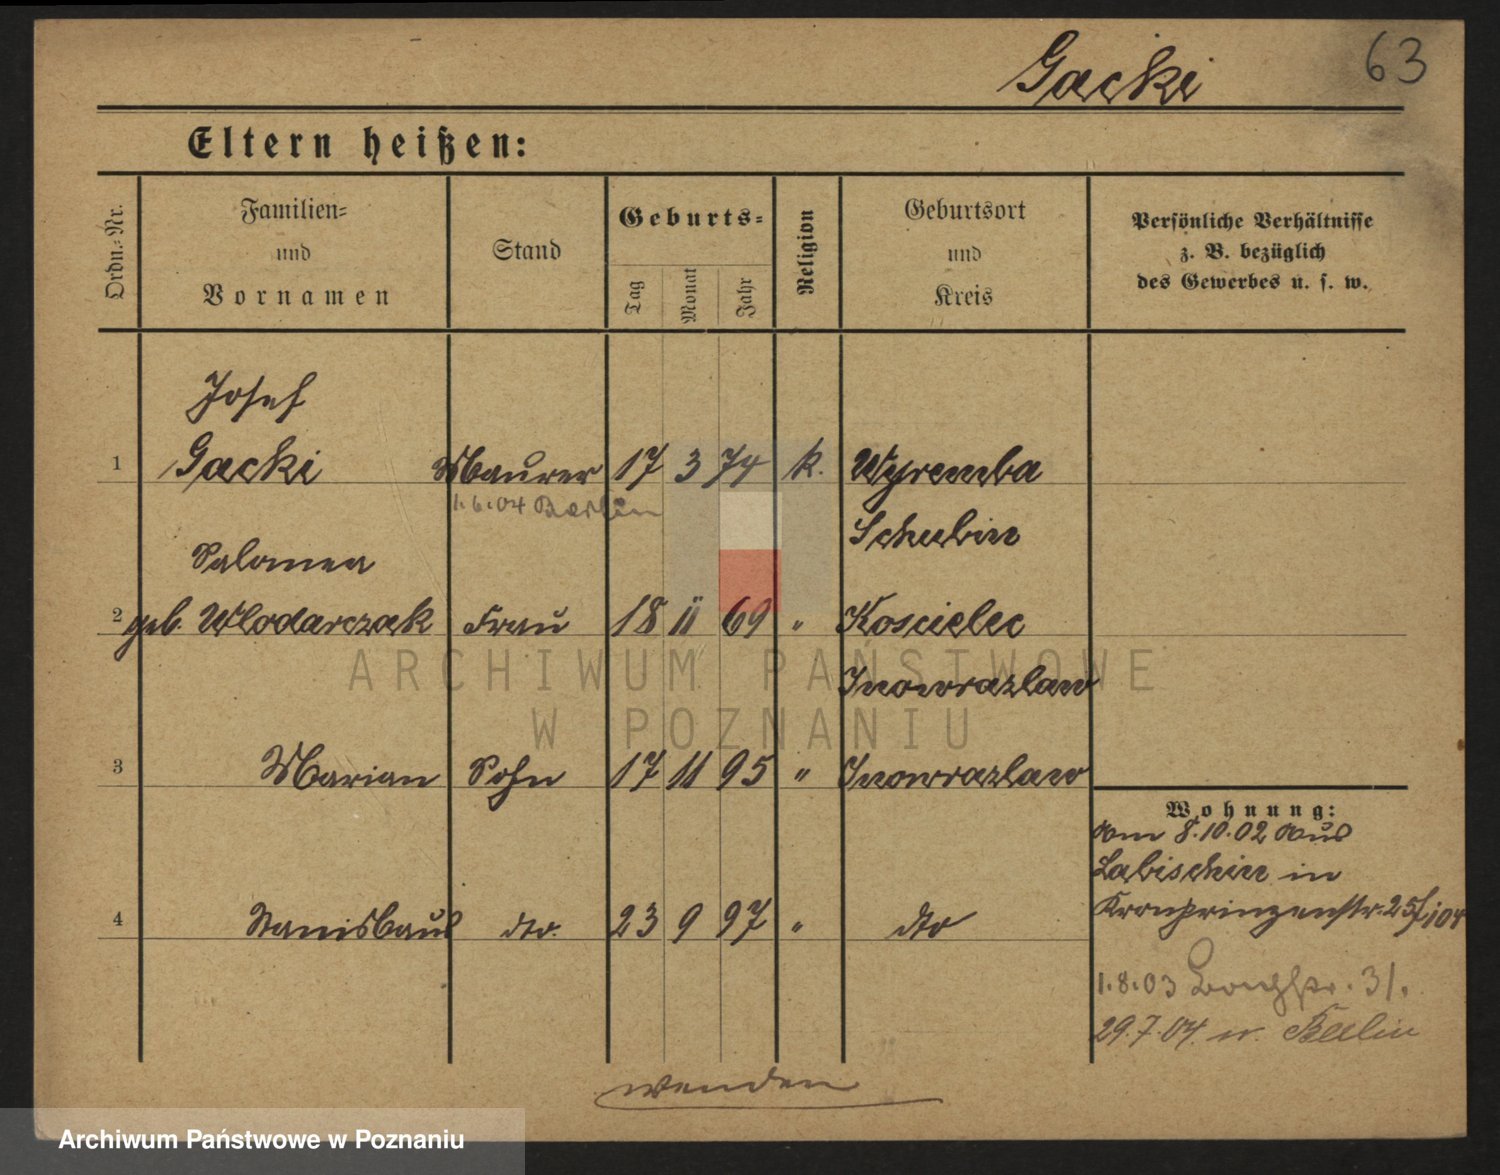 63
Gacki
Eltern heißen:
Ordn.-Nr.
Familien-
und
Vornamen
Stand
Geburts-
Tag
Monat
Jahr
Religion
Geburtsort
und
Kreis
Persönliche Verhältnisse
z. B. bezüglich
des Gewerbes u. s. w.
Josef
1 Gacki Maurer 17 3 74 k. Wyremba
1.6.04 Berlin
Schubin
Salomea
2 geb. Wlodarczak Frau 18 11 69 " Koscielec
Inowrazlaw
3 Marian Sohn 17 11 95 " Inowrazlaw
Wohnung:
Am 8.10.02 aus
Labischin in
4 Stanislaus dto. 23 9 97 " dto
Kronprinzenstr. 25
1.8.03 31.
29.7.04. n. Berlin
wenden
ARCHIWUM PAŃSTWOWE
W POZNANIU
Archiwum Państwowe w Poznaniu